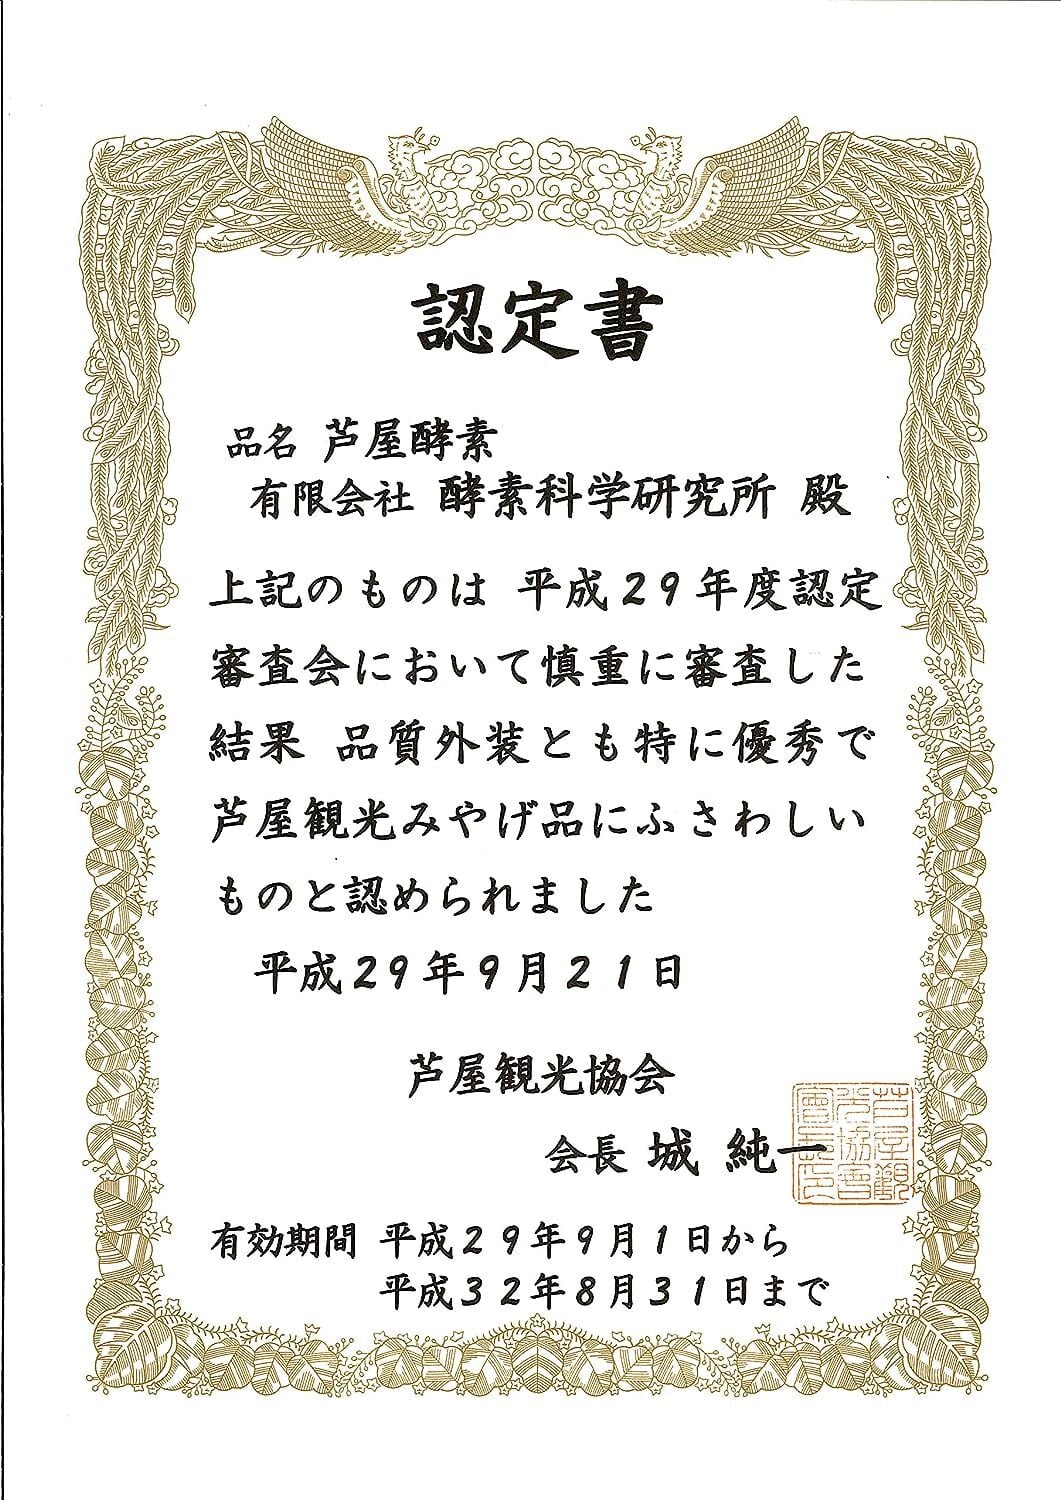 認定書
品名 芦屋酵素
有限会社 酵素科学研究所 殿
上記のものは 平成29年度認定
審査会において慎重に審査した
結果 品質外装とも特に優秀で
芦屋観光みやげ品にふさわしい
ものと認められました
平成29年9月21日
芦屋観光協会
会長 城 純一
芦屋観光協會會長之印
有効期間 平成29年9月1日から
平成32年8月31日まで